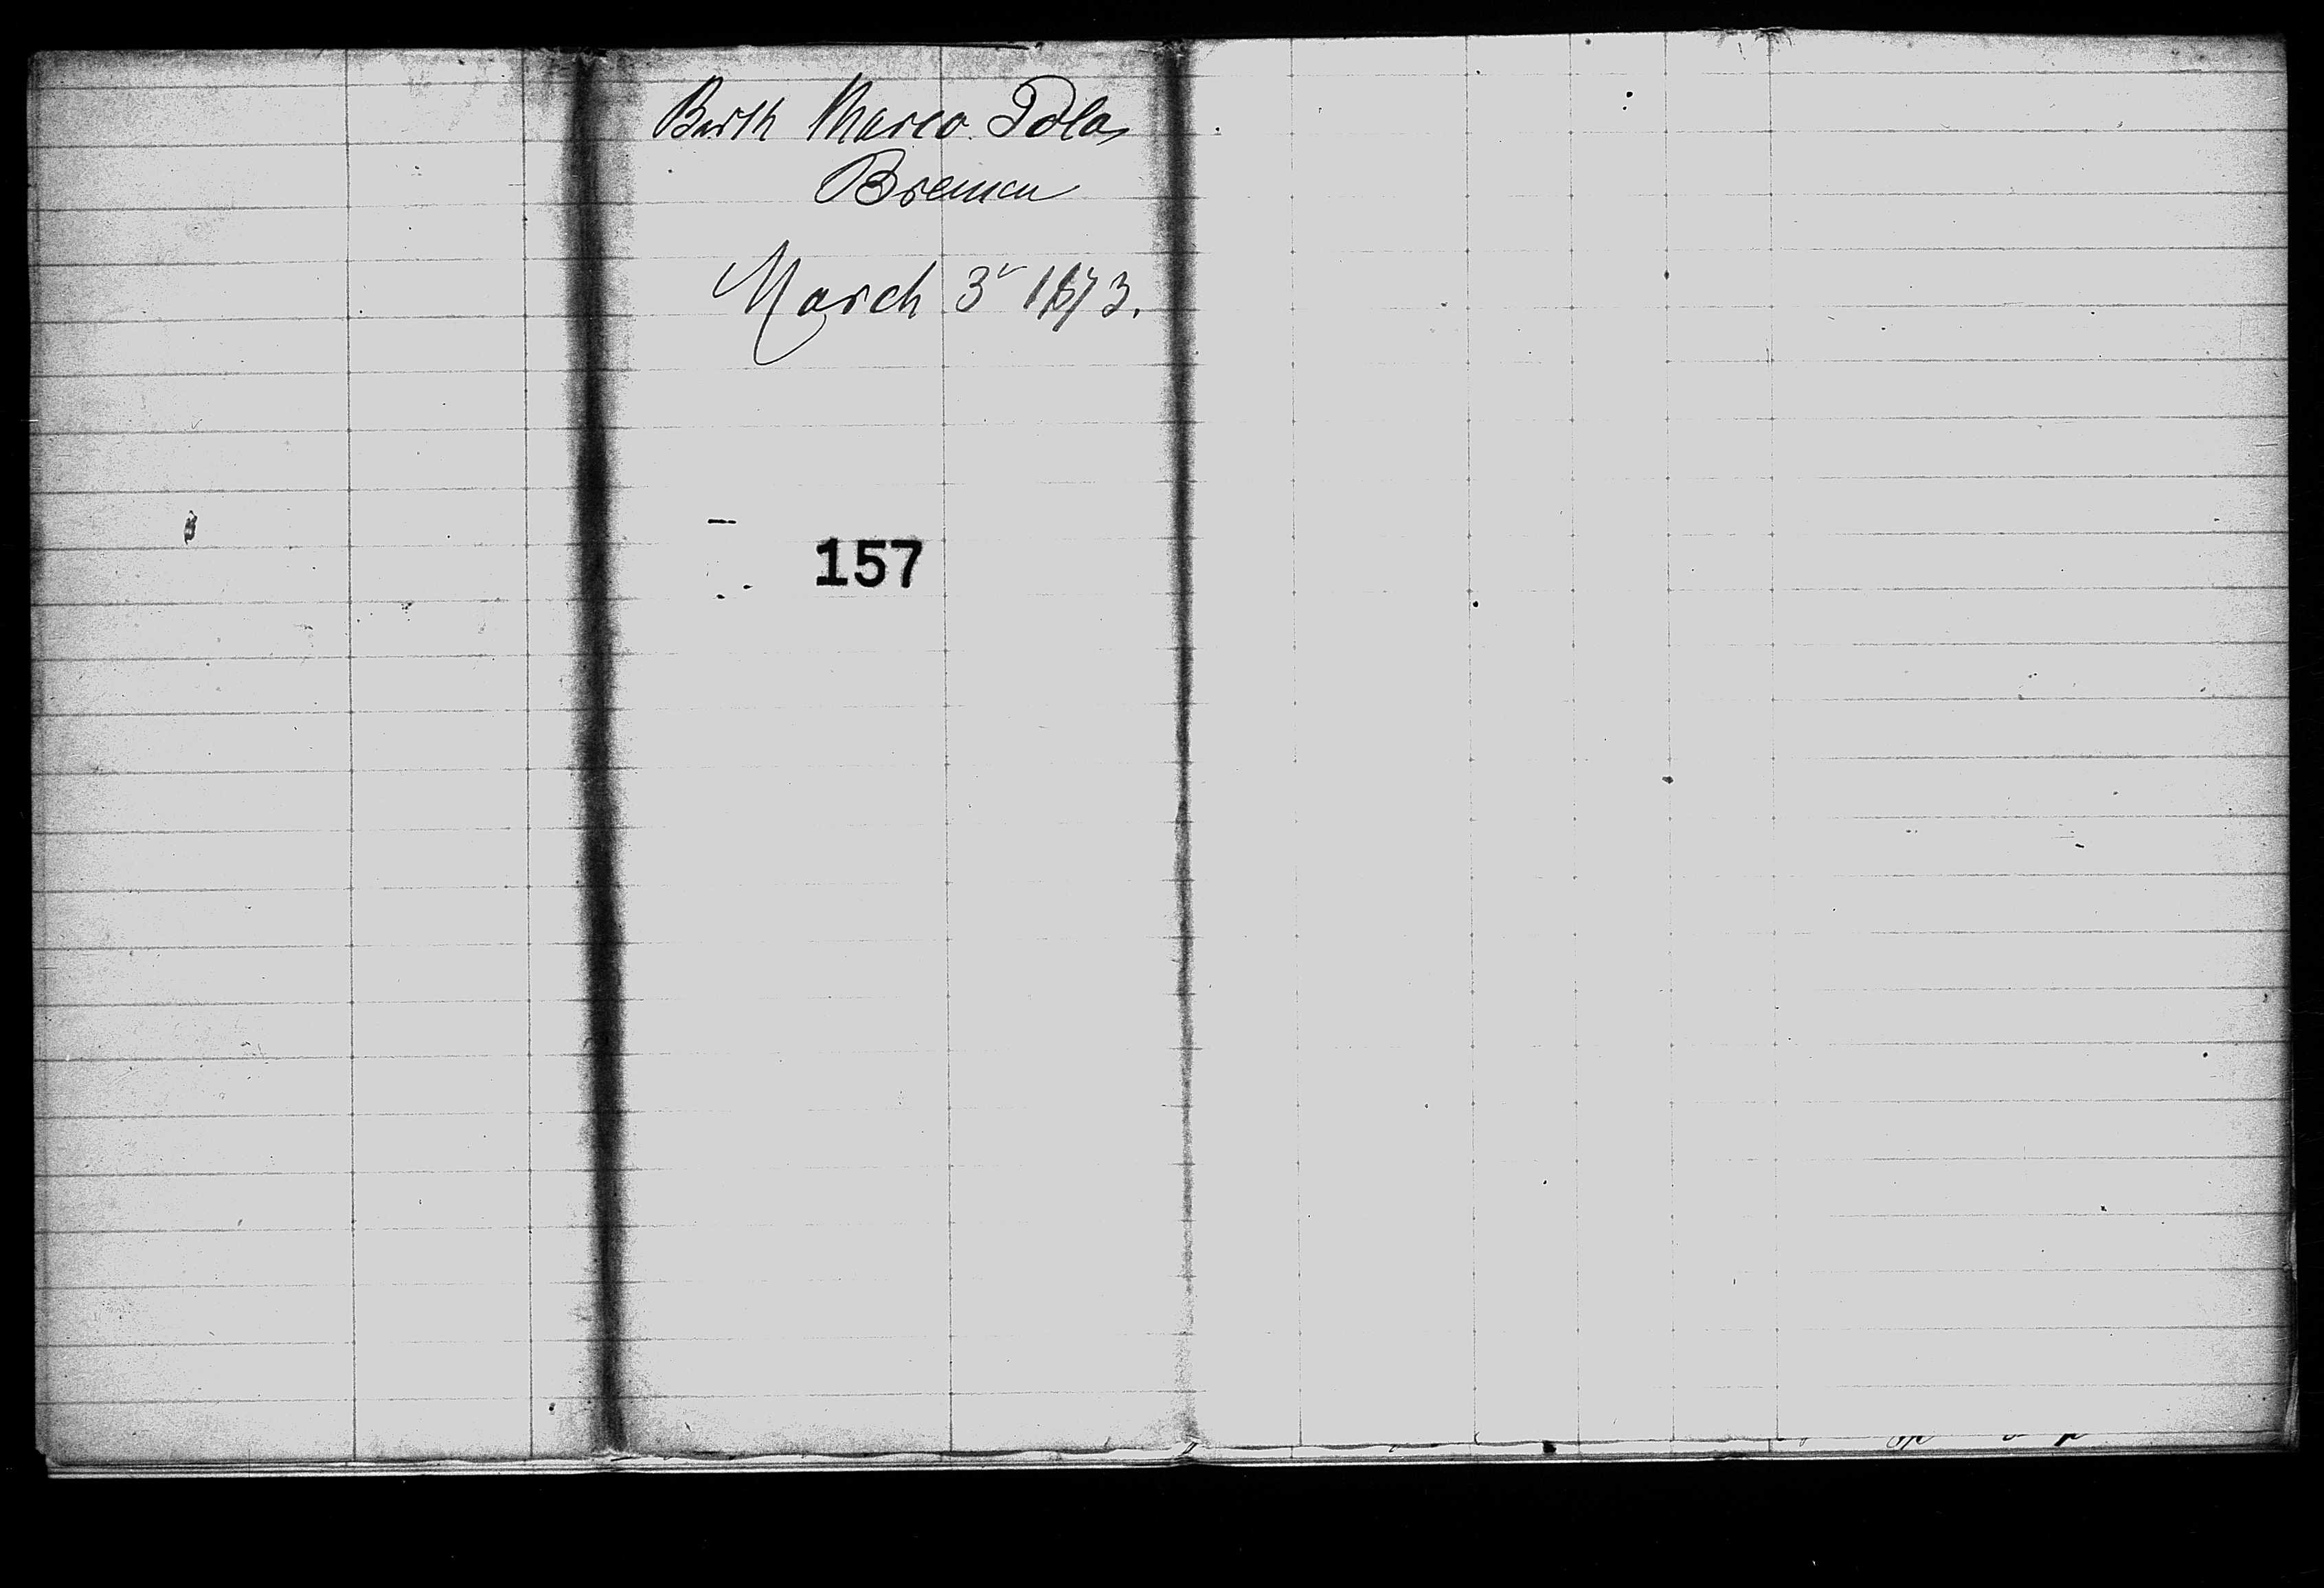 Barth Marco Polo
Bremen
March 3ʳ 1873.
157